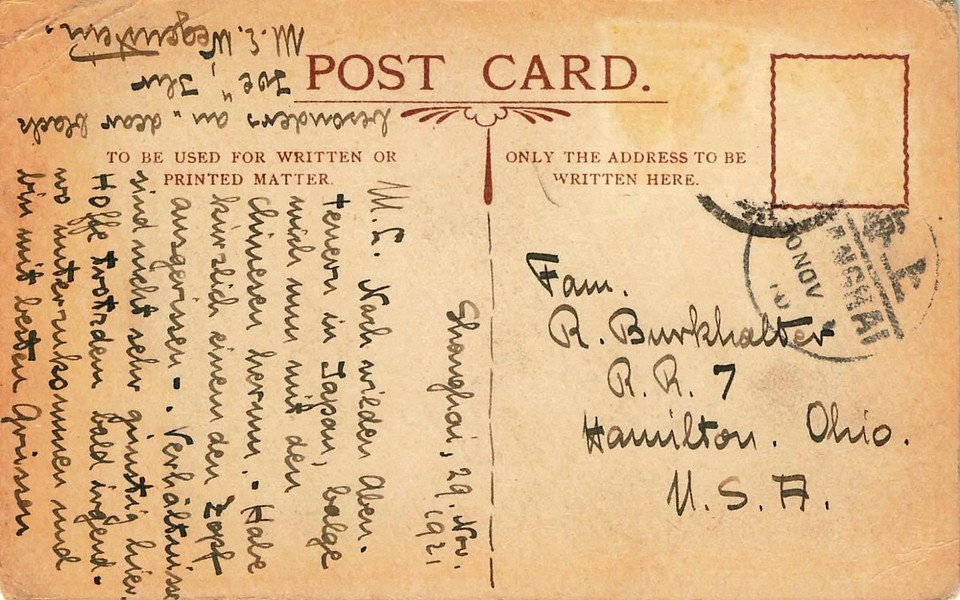 POST CARD.
TO BE USED FOR WRITTEN OR
PRINTED MATTER.
ONLY THE ADDRESS TO BE
WRITTEN HERE.
Shanghai, 29. Nov.
1921
M. L. Nach wilden Aben-
teuern in Japan, balge
mich nun mit den
Chinesen herum. - Habe
kürzlich einem den Zopf
ausgerissen - . Verhältnisse
sind nicht sehr günstig hier.
Hoffe trotzdem bald irgend-
wo unterzukommen und
bin mit besten Grüssen
besonders an „dear black
Joe“, Ihr
M. E. Wegenstein.
Fam.
R. Burkhalter
R. R. 7
Hamilton. Ohio.
U. S. A.
NOV